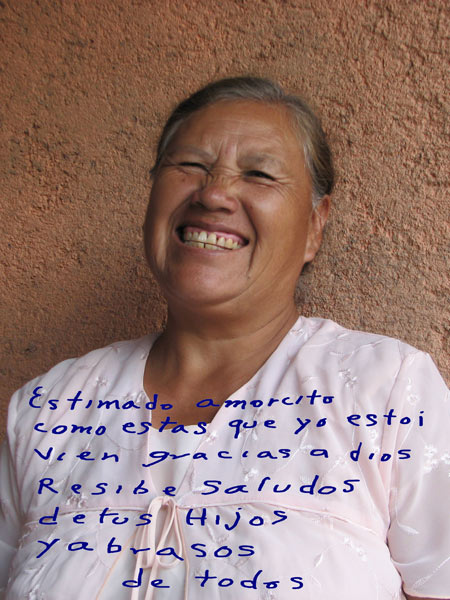 Estimado amorcito
como estas que yo estoi
vien gracias a dios
Resibe saludos
detus Hijos
yabrasos
de todos